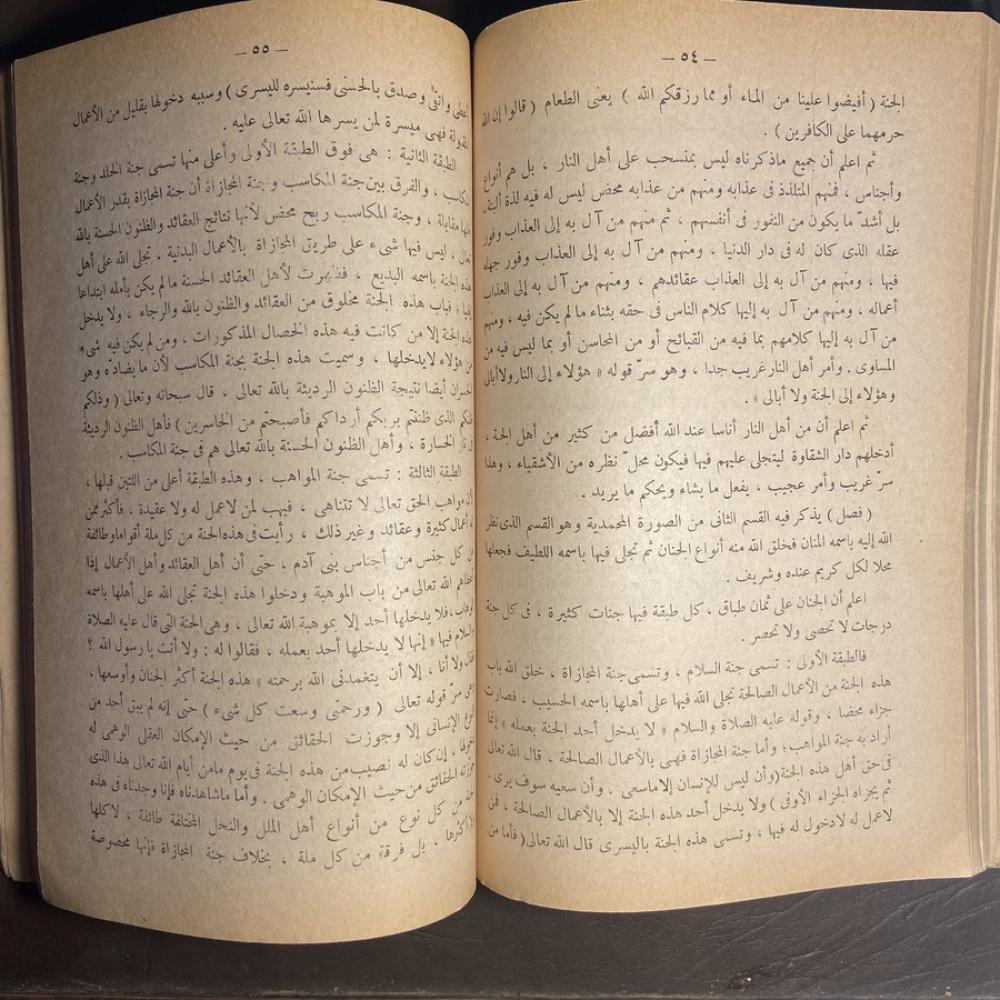 — ٥٤ —
الجنة ( أفيضوا علينا من الماء أو مما رزقكم الله ) يعنى الطعام ( قالوا إن الله
حرمهما على الكافرين ) .
ثم اعلم أن جميع ماذكرناه ليس بمنسحب على أهل النار ، بل هم أنواع
وأجناس ، فمنهم المتلذذ فى عذابه ومنهم من عذابه محض ليس له فيه لذة ألبتة،
بل أشدّ ما يكون من النفور فى أنفسهم ، ثم منهم من آل به إلى العذاب وفور
عقله الذى كان له فى دار الدنيا ، ومنهم من آل به إلى العذاب وفور جهله
فيها ، ومنهم من آل به إلى العذاب عقائدهم ، ومنهم من آل به إلى العذاب
أعماله ، ومنهم من آل به إليها كلام الناس فى حقه بثناء ما لم يكن فيه ، ومنهم
من آل به إليها كلامهم بما فيه من القبائح أو من المحاسن أو بما ليس فيه من
المساوى . وأمر أهل النار غريب جدا ، وهو سرّ قوله « هؤلاء إلى النار ولا أبالى
وهؤلاء إلى الجنة ولا أبالى » .
ثم اعلم أن من أهل النار أناسا عند الله أفضل من كثير من أهل الجنة ،
أدخلهم دار الشقاوة ليتجلى عليهم فيها فيكون محلّ نظره من الأشقياء ، وهذا
سرّ غريب وأمر عجيب ، يفعل ما يشاء ويحكم ما يريد .
( فصل ) يذكر فيه القسم الثانى من الصورة المحمدية وهو القسم الذى نظر
الله إليه باسمه المنان فخلق الله منه أنواع الجنان ثم تجلى فيها باسمه اللطيف فجعلها
محلا لكل كريم عنده وشريف .
اعلم أن الجنان على ثمان طباق ، كل طبقة فيها جنات كثيرة ، فى كل جنة
درجات لا تحصى ولا تحصر .
فالطبقة الأولى : تسمى جنة السلام ، وتسمى جنة المجازاة ، خلق الله باب
هذه الجنة من الأعمال الصالحة تجلى الله فيها على أهلها باسمه الحسيب ، فصارت
جزاء محضا ، وقوله عليه الصلاة والسلام « لا يدخل أحد الجنة بعمله » إنما
أراد به جنة المواهب؛ وأما جنة المجازاة فهى بالأعمال الصالحة ، قال الله تعالى
فى حق أهل هذه الجنة (وأن ليس للإنسان إلا ماسعى . وأن سعيه سوف يرى .
ثم يجزاه الجزاء الأوفى) ولا يدخل أحد هذه الجنة إلا بالأعمال الصالحة ، فمن
لاعمل له لادخول له فيها ، وتسمى هذه الجنة باليسرى قال الله تعالى (فأما من
— ٥٥ —
أعطى واتقى وصدق بالحسنى فسنيسره لليسرى) وسببه دخولها بقليل من الأعمال
فهى ميسرة لمن يسرها الله تعالى عليه .
الطبقة الثانية : هى فوق الطبقة الأولى وأعلى منها تسمى جنة الخلد وجنة
المكاسب ، والفرق بين جنة المكاسب وجنة المجازاة أن جنة المجازاة بقدر الأعمال
مقابلة ، وجنة المكاسب ربح محض لأنها نتائج العقائد والظنون الحسنة بالله
تعالى ، ليس فيها شىء على طريق المجازاة بالأعمال البدنية ، تجلى الله على أهل
هذه الجنة باسمه البديع ، فظهرت لأهل العقائد الحسنة ما لم يكن يأمله ابتداعا
؛ فباب هذه الجنة مخلوق من العقائد والظنون بالله والرجاء ، ولا يدخل
هذه الجنة إلا من كانت فيه هذه الخصال المذكورات ، ومن لم يكن فيه شىء
من هؤلاء لايدخلها ، وسميت هذه الجنة بجنة المكاسب لأن ما يضادّه وهو
الخسران أيضا نتيجة الظنون الرديئة بالله تعالى ، قال سبحانه وتعالى (وذلكم
ظنكم الذى ظننتم بربكم أرداكم فأصبحتم من الخاسرين) فأهل الظنون الرديئة
فى نار الخسارة ، وأهل الظنون الحسنة بالله تعالى هم فى جنة المكاسب .
الطبقة الثالثة : تسمى جنة المواهب ، وهذه الطبقة أعلى من اللتين قبلها ،
لأن مواهب الحق تعالى لا تتناهى ، فيهب لمن لاعمل له ولا عقيدة ، فأكثر ممن
له أعمال كثيرة وعقائد وغير ذلك ، رأيت فى هذه الجنة من كل ملة أقواما وطائفة
من كل جنس من أجناس بنى آدم ، حتى أن أهل العقائد وأهل الأعمال إذا
أعطاهم الله تعالى من باب الموهبة ودخلوا هذه الجنة تجلى الله على أهلها باسمه
الوهاب ، فلا يدخلها أحد إلا بموهبة الله تعالى ، وهى الجنة التى قال عليه الصلاة
والسلام فيها « إنها لا يدخلها أحد بعمله ، فقالوا له : ولا أنت يا رسول الله ؟
فقال ولا أنا ، إلا أن يتغمدنى الله برحمته » هذه الجنة أكثر الجنان وأوسعها ،
وهى سرّ قوله تعالى ( ورحمتى وسعت كل شىء ) حتى إنه لم يبق أحد من
النوع الإنسانى إلا وجوزت الحقائق من حيث الإمكان العقلى الوهمى له
دخولها ، إن كان له نصيب من هذه الجنة فى يوم ما من أيام الله تعالى هذا الذى
جوّزته الحقائق من حيث الإمكان الوهمى . وأما ماشاهدناه فإنا وجدناه فى هذه
من كل نوع من أنواع أهل الملل والنحل المختلفة طائفة ، لا كلها
ولا أكثرها ، بل فرقة من كل ملة ، بخلاف جنة المجازاة فإنها مخصوصة